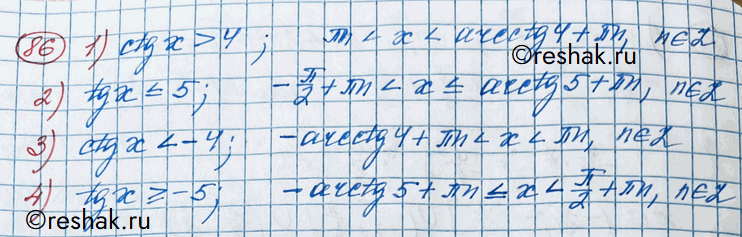 86 1) ctg x > 4; πn < x < arcctg 4 + πn, n∈Z
©reshak.ru
2) tg x ≤ 5; -π/2 + πn < x ≤ arctg 5 + πn, n∈Z
3) ctg x < -4; -arcctg 4 + πn < x < πn, n∈Z
4) tg x ≥ -5; -arctg 5 + πn ≤ x < π/2 + πn, n∈Z
©reshak.ru